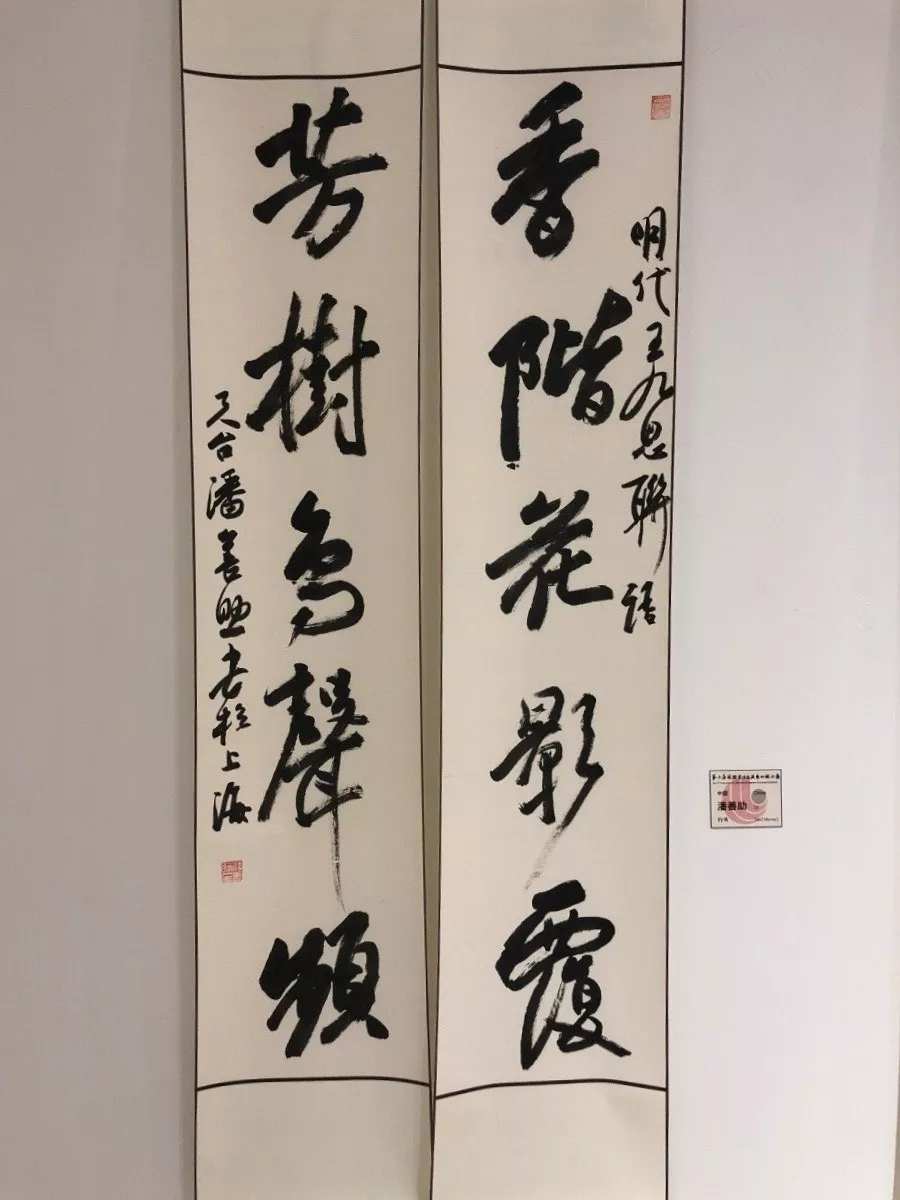 香階花影覆
明代王九思聯語
芳樹鳥聲頻
天台潘善助書於上海
中國
潘善助